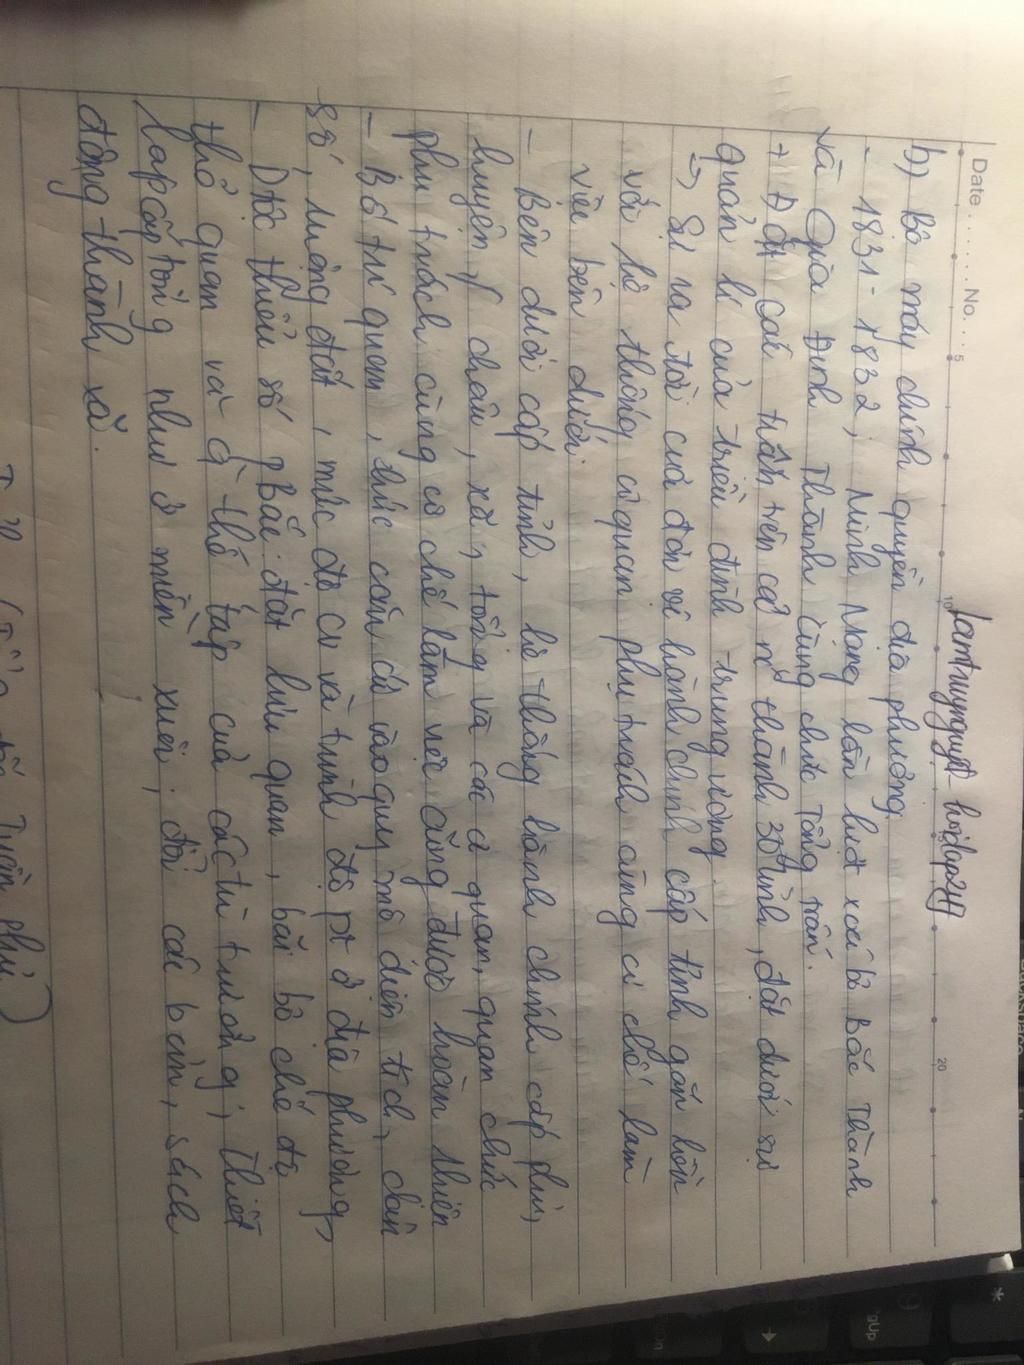 Date . . . . . . . No. . . .
5 10 20
lamtnguyguyet hoidap247
b) Bộ máy chính quyền địa phương
- 1831 - 1832, Minh Mạng lần lượt xoá bỏ Bắc Thành
và Gia Định Thành cùng chức Tổng trấn.
+ Đổi các trấn trên cả nc thành 30 tỉnh, đặt dưới sự
quản lí của triều đình trung ương.
=> Sự ra đời của đơn vị hành chính cấp tỉnh gắn liền
với hệ thống cơ quan phụ trách cùng cơ chế làm
việc bên dưới.
- Bên dưới cấp tỉnh, hệ thống hành chính cấp phủ,
huyện / châu, xã, tổng và các cơ quan, quan chức
phụ trách cùng cơ chế làm việc cũng được hoàn thiện
- Bố trí quan, chức căn cứ vào quy mô diện tích, dân
số, ruộng đất, mức độ cư và trình độ pt ở địa phương,
- Dtộc thiểu số pBắc: đặt lưu quan, bãi bỏ chế độ
thổ quan và thế tập của các tù trưởng; thiết
lập cấp tổng như ở miền xuôi; đổi các bản, sách
động thành xã.